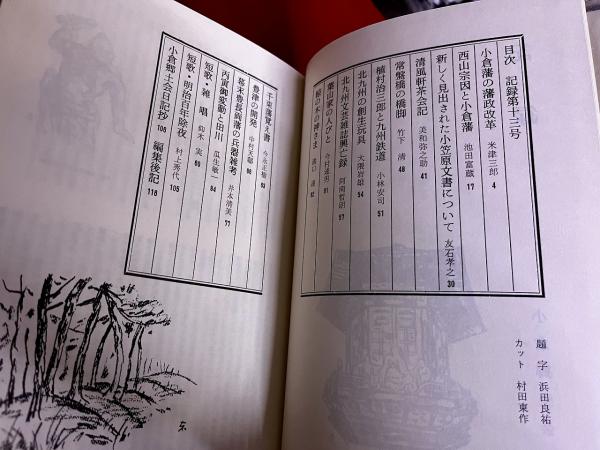 目次　記録第十三号
小倉藩の藩政改革　米津三郎　4
西山宗因と小倉藩　池田富蔵　17
新しく見出された小笠原文書について　友石孝之　30
清風軒茶会記　美和弥之助　41
常盤橋の橋脚　竹下清　48
植村治三郎と九州鉄道　小林安司　51
北九州の創生玩具　大隈岩雄　54
北九州文芸雑誌興亡録　阿南哲朗　57
葉山家の人びと　今村達男　61
千束藩覚え書
豊津の開発
幕末豊長両藩の兵器雑考　井本清美　77
丙寅御変動と田川　瓜生敏一　84
短歌・雑唱
短歌・明治百年除夜　村上秀代　105
小倉郷土会日記抄　106　編集後記　118
題字　浜田良祐
カット　村田東作